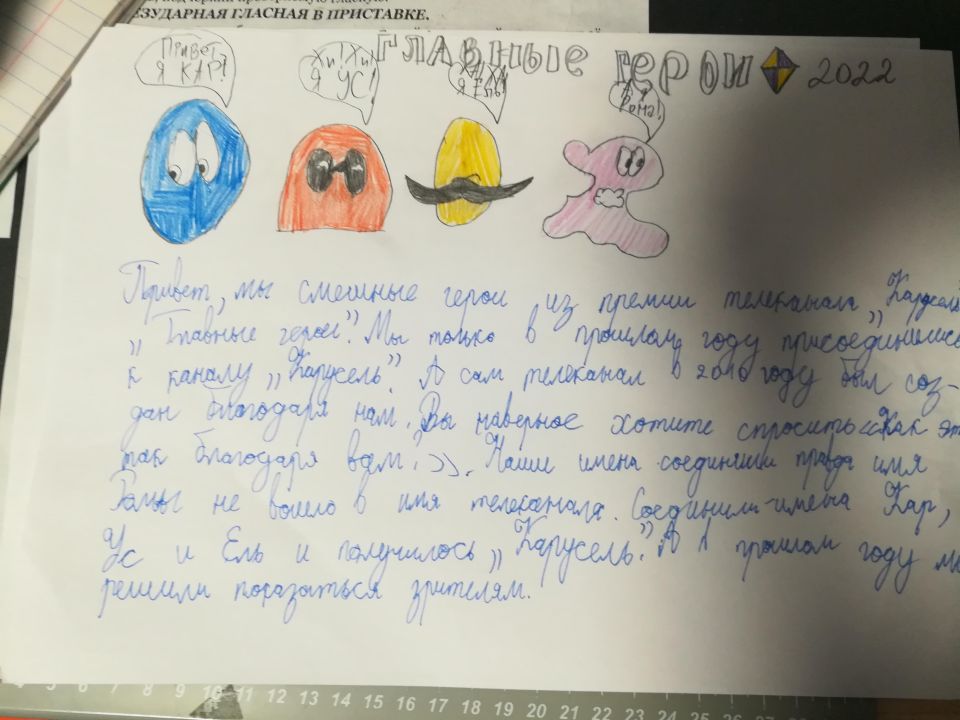 ЕЗУДАРНАЯ ГЛАСНАЯ В ПРИСТАВКЕ.
ГЛАВНЫЕ ГЕРОИ 2022
ПРИВЕТ
Я КАР!
ХИ! ХИ!
Я УС!
Я ЕЛЬ!
Я
Рома!
Привет, мы смешные герои из премии телеканала „Карусель
„Главные герои". Мы только в прошлом году присоединились
к каналу „Карусель". А сам телеканал в 2010 году был соз-
дан благодаря нам. Вы наверное хотите спросить «Как эт
так благодаря вам?». Наши имена соединили правда имя
Ромы не вошло в имя телеканала. Соединили имена Кар,
Ус и Ель и получилось „Карусель". А в прошлом году мы
решили показаться зрителям.
5 6 7 8 9 10 11 12 13 14 15 16 17 18 19 20 21 22 23 24 25 26 27